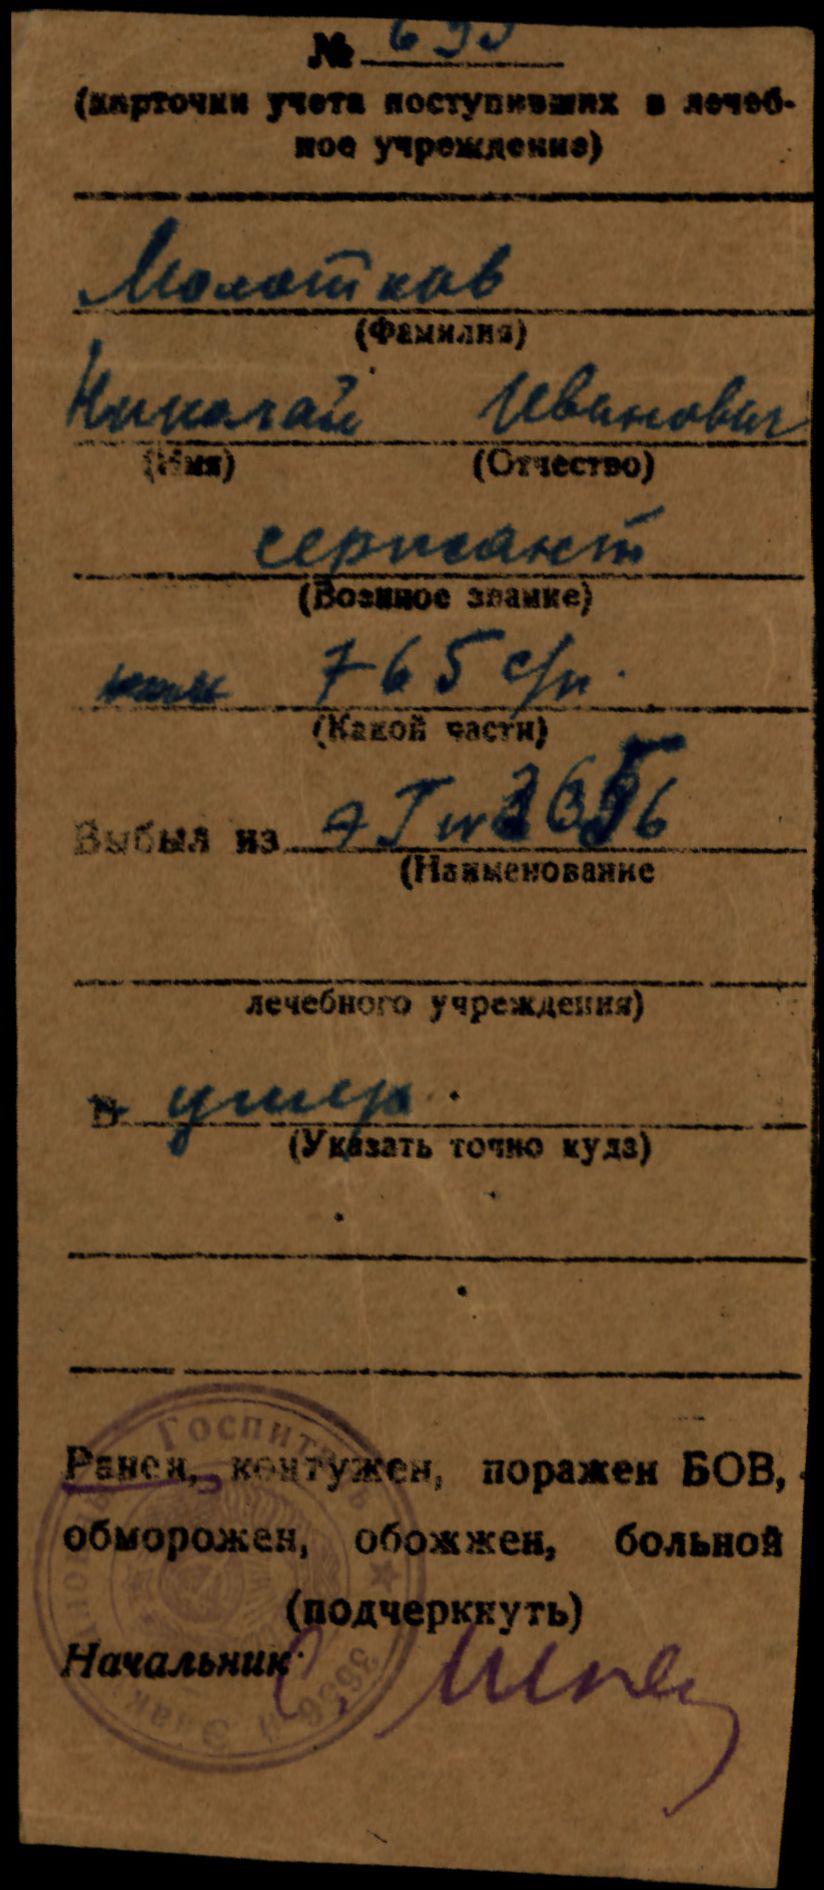 №
(карточки учета поступивших в лечеб-
ное учреждение)
Молотков
(Фамилия)
Николай Иванович
(Имя) (Отчество)
сержант
(Военное звание)
765 с/п.
(Какой части)
Выбыл из
(Наименование
лечебного учреждения)
В умер.
(Указать точно куда)
Ранен, контужен, поражен БОВ,
обморожен, обожжен, больной
(подчеркнуть)
Начальник
Госпиталь